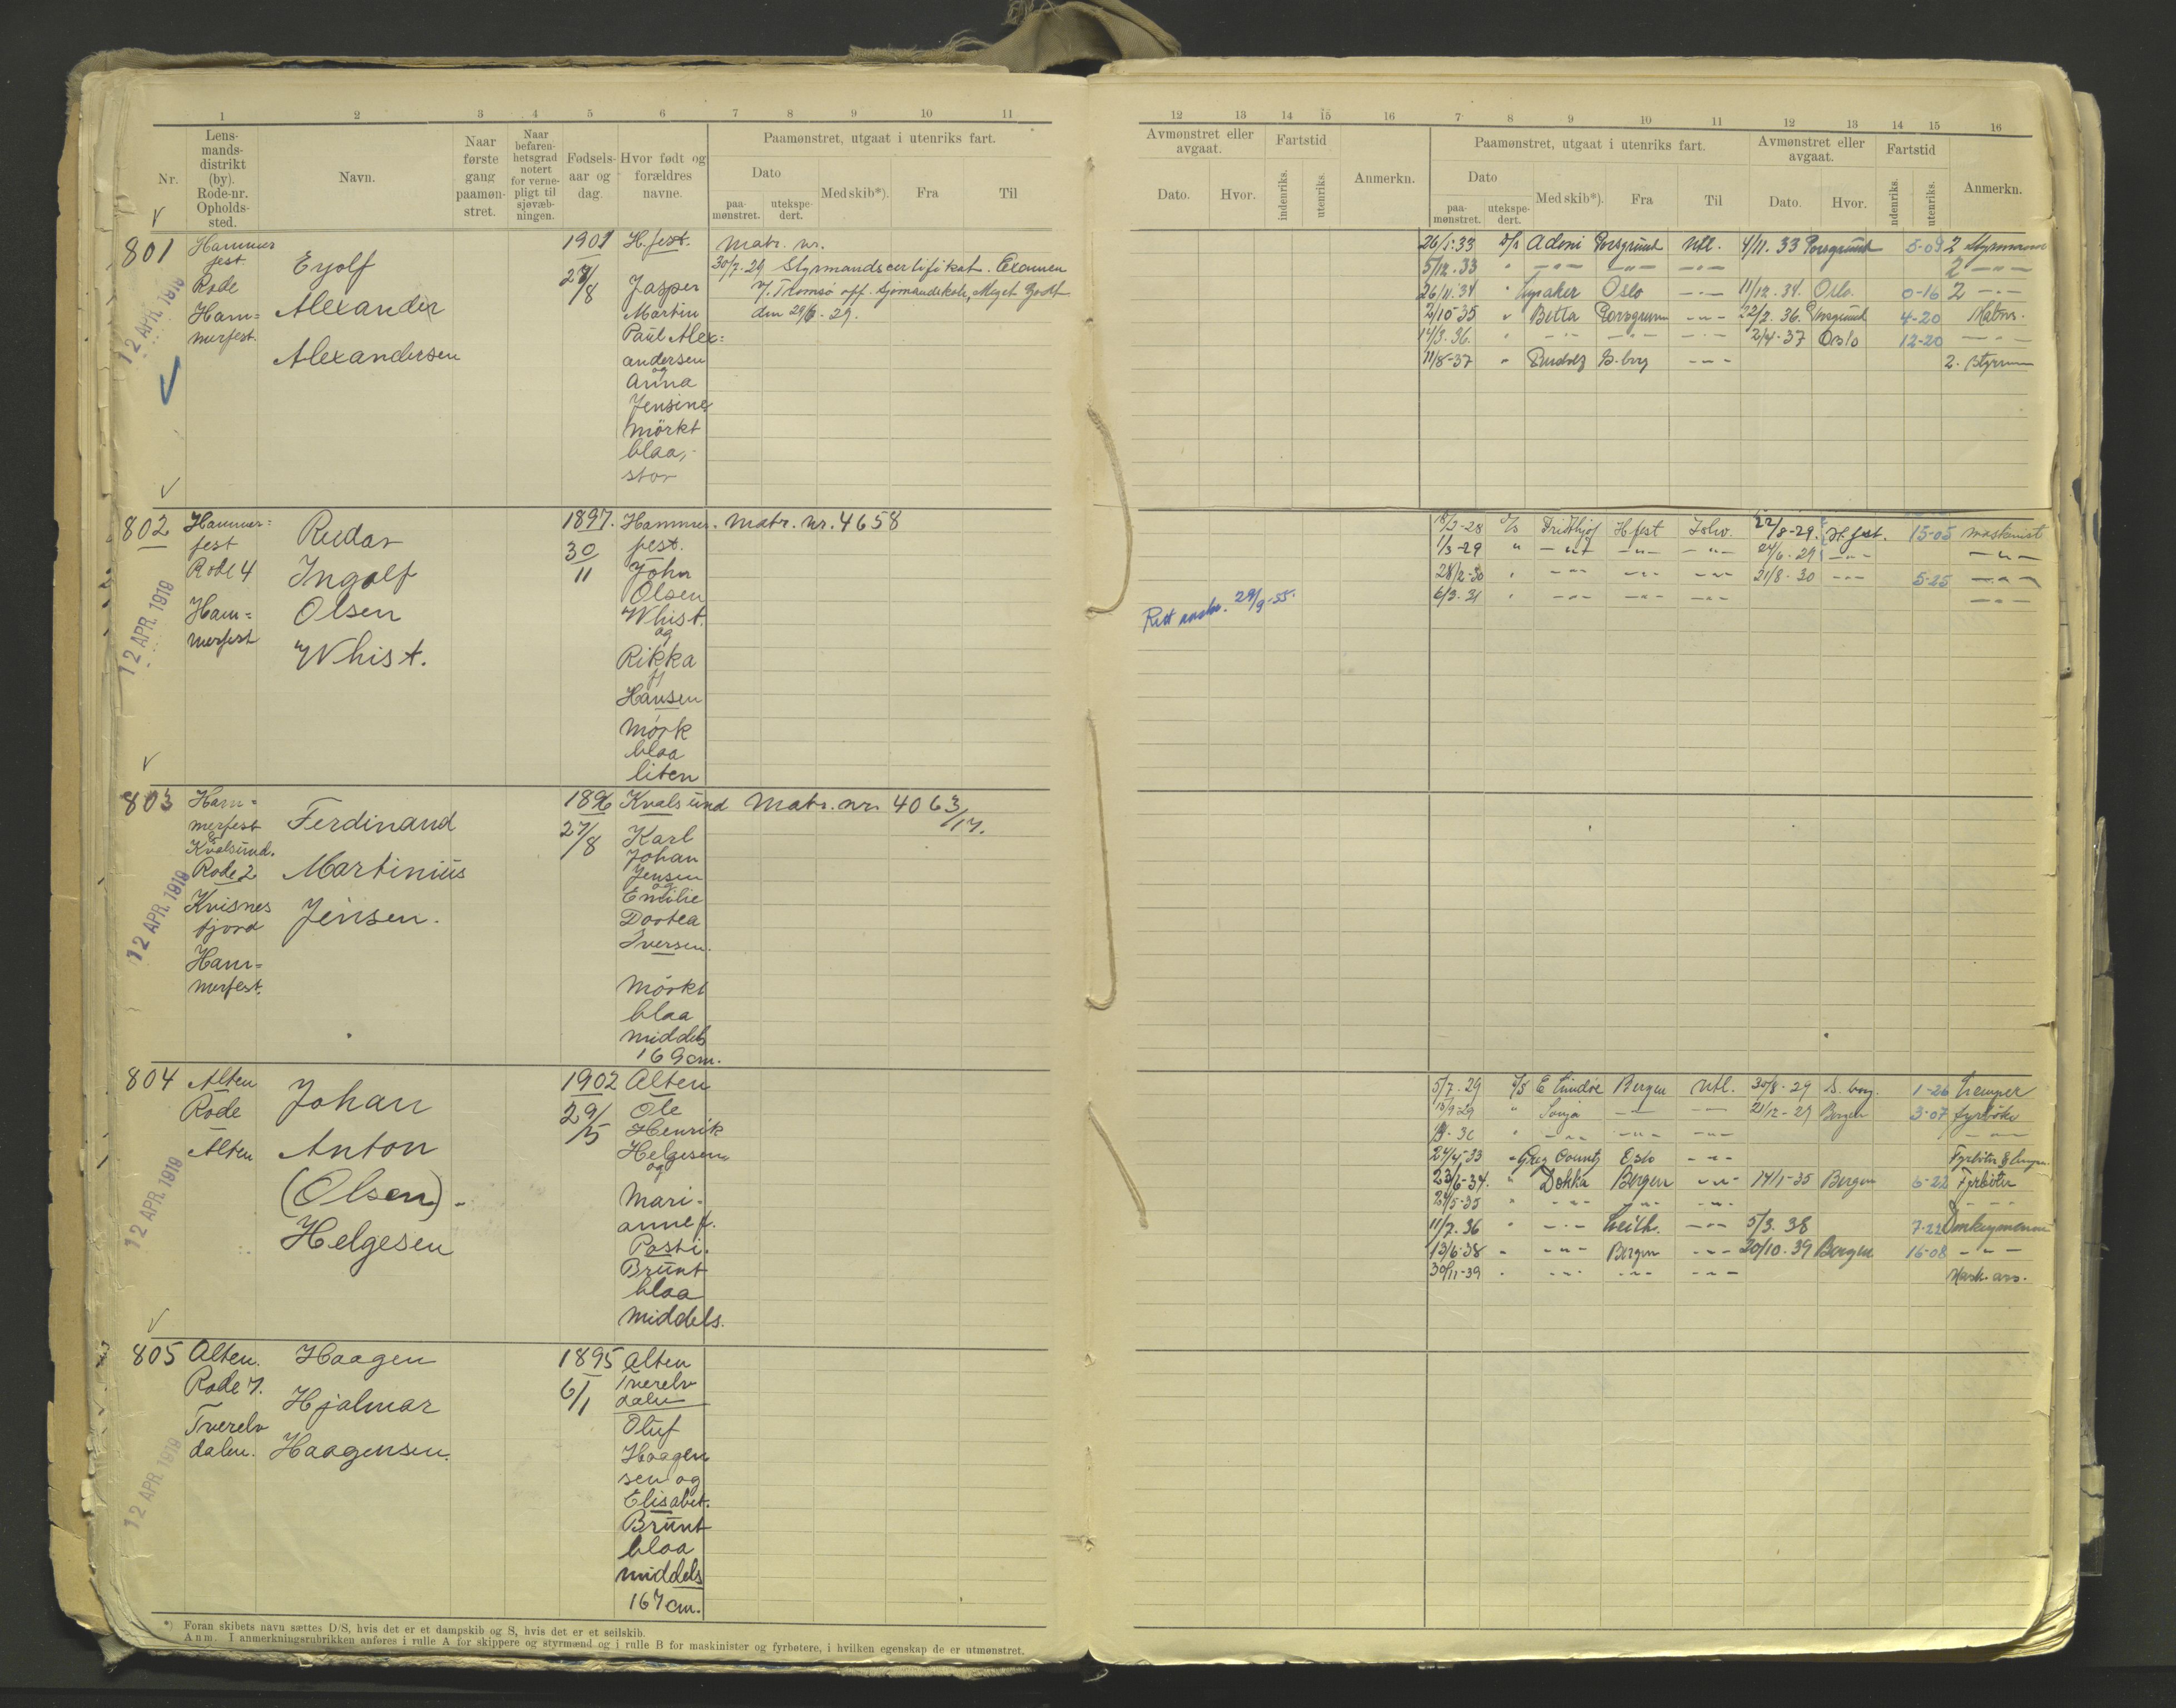 1 2 3 4 5 6 7 8 9 10 11
Nr. Lens-mands-distrikt (by). Rode-nr. Opholds-sted. Navn. Naar første gang paamøn-stret. Naar befaren-hetsgrad notert for verne-pligt til sjøvæb-ningen. Fødsels-aar og dag. Hvor født og forældres navne.
Paamønstret, utgaat i utenriks fart.
Dato Med skib*). Fra Til
paa-mønstret. utekspe-dert.
801 Hammer
fest.
Rode
Ham=
merfest.
12 APR. 1919
Eyolf
Alexander
Alexandersen
1901
27/8
H.fest.
Jasper
Martin
Paul Alex=
andersen
og
Anna
Jensine
Mörkt
blaa,-
stor
Matr. nr.
30/7-29 Styrmandscertifikat. Examen
v/. Tromsø off. Sjømandskole, Meget Godt
den 29/6-29.
802 Hammer=
fest
Rode 4
Ham=
merfest
12 APR. 1919
Rudar
Ingolf
Olsen
Whist.
1897.
30
11
Hammer.
fest.
John
Olsen
Whist.
og
Rikka
f/
Hansen
Mørk
blaa
liten
Matr. nr. 4658
803 Ham=
merfest
&
Kvalsund.
Rode 2
Kvisnes
fjord
Ham=
merfest.
12 APR. 1919
Ferdinand
Martinius
Jensen.
1896
27/8
Kvalsund
Karl
Johan
Jensen
og
Emilie
Dortea
Iversen.
Mörkt
blaa
middels
169 cm.
Matr. nr. 4063/17.
804 Alten
Rode
Alten
12 APR. 1919
Johan
Anton
(Olsen)-
Helgesen
1902
29/5
Alten
Ole
Henrik
Helgesen
og
Mari-
anne f.
Posti.
Brunt
blaa
middels.
805 Alten.
Rode 7.
Tverelv
dalen.
12 APR. 1919
Haagen
Hjalmar
Haagensen.
1895
6/1
Alten
Tverelv
dalen
Oluf
Haagen
sen og
Elisabet.
Brunt
blaa
middels
167 cm.
*) Foran skibets navn sættes D/S, hvis det er et dampskib og S, hvis det er et seilskib.
Anm. I anmerkningsrubrikken anføres i rulle A for skippere og styrmænd og i rulle B for maskinister og fyrbøtere, i hvilken egenskap de er utmønstret.
12 13 14 15 16 7 8 9 10 11 12 13 14 15 16
Avmønstret eller avgaat. Fartstid Anmerkn. Paamønstret, utgaat i utenriks fart. Avmønstret eller avgaat. Fartstid Anmerkn.
Dato. Hvor. indenriks. utenriks. Dato Med skib*). Fra Til Dato. Hvor. indenriks. utenriks.
paa-mønstret. utekspe-dert.
26/5-33 D/s Adoni Porsgrund Utl. 4/11. 33 Porsgrund 5-09 2 Styrmann
5/12.33 " -"- -"- -"- 2 -"-
26/11.34 " Lysaker Oslo -"- 11/12. 34. Oslo. 0-16 2 -"-
2/10-35 " Betta Porsgrunn -"- 22/2. 36. Porsgrund 4-20 Matros.
14/3. 36. " -"- -"- -"- 3/4-37 Oslo 12-20 -"-
11/8-37 " G.borg -"- 2. Styrm
18/3-28 D/s Fridthjof H.fest Ishv. 22/8-29. H.fest. 15-05 maskinist
1/3-29 " -"- -"- -"- 24/6-29 -"- -"-
28/2-30 " -"- -"- -"- 21/8-30 -"- 5-25 -"-
6/3-31 " -"- -"- -"- -"-
29/9-55.
5/7-29 D/S E Lindøe Bergen Utl. 30/8-29 S.borg. 1-26 Lemper
13/9-29 " Sonja -"- -"- 21/12-29 Bergen 3-07 fyrbøter
-30 " -"- -"- -"- -"-
24/4-33 " Grey County Oslo -"- Fyrbøter &
23/6-34. " Dokka Bergen -"- 14/1-35 Bergen 6-22 Fyrbøter
24/5-35 " -"- -"- -"- -"-
11/7.36 " -"- Leith. -"- 5/3. 38 7-22 Donkeymann
13/6-38 " -"- Bergen -"- 20/10-39 Bergen 16-08 -"-
30/11-39 " -"- -"- -"- Mask. ass.